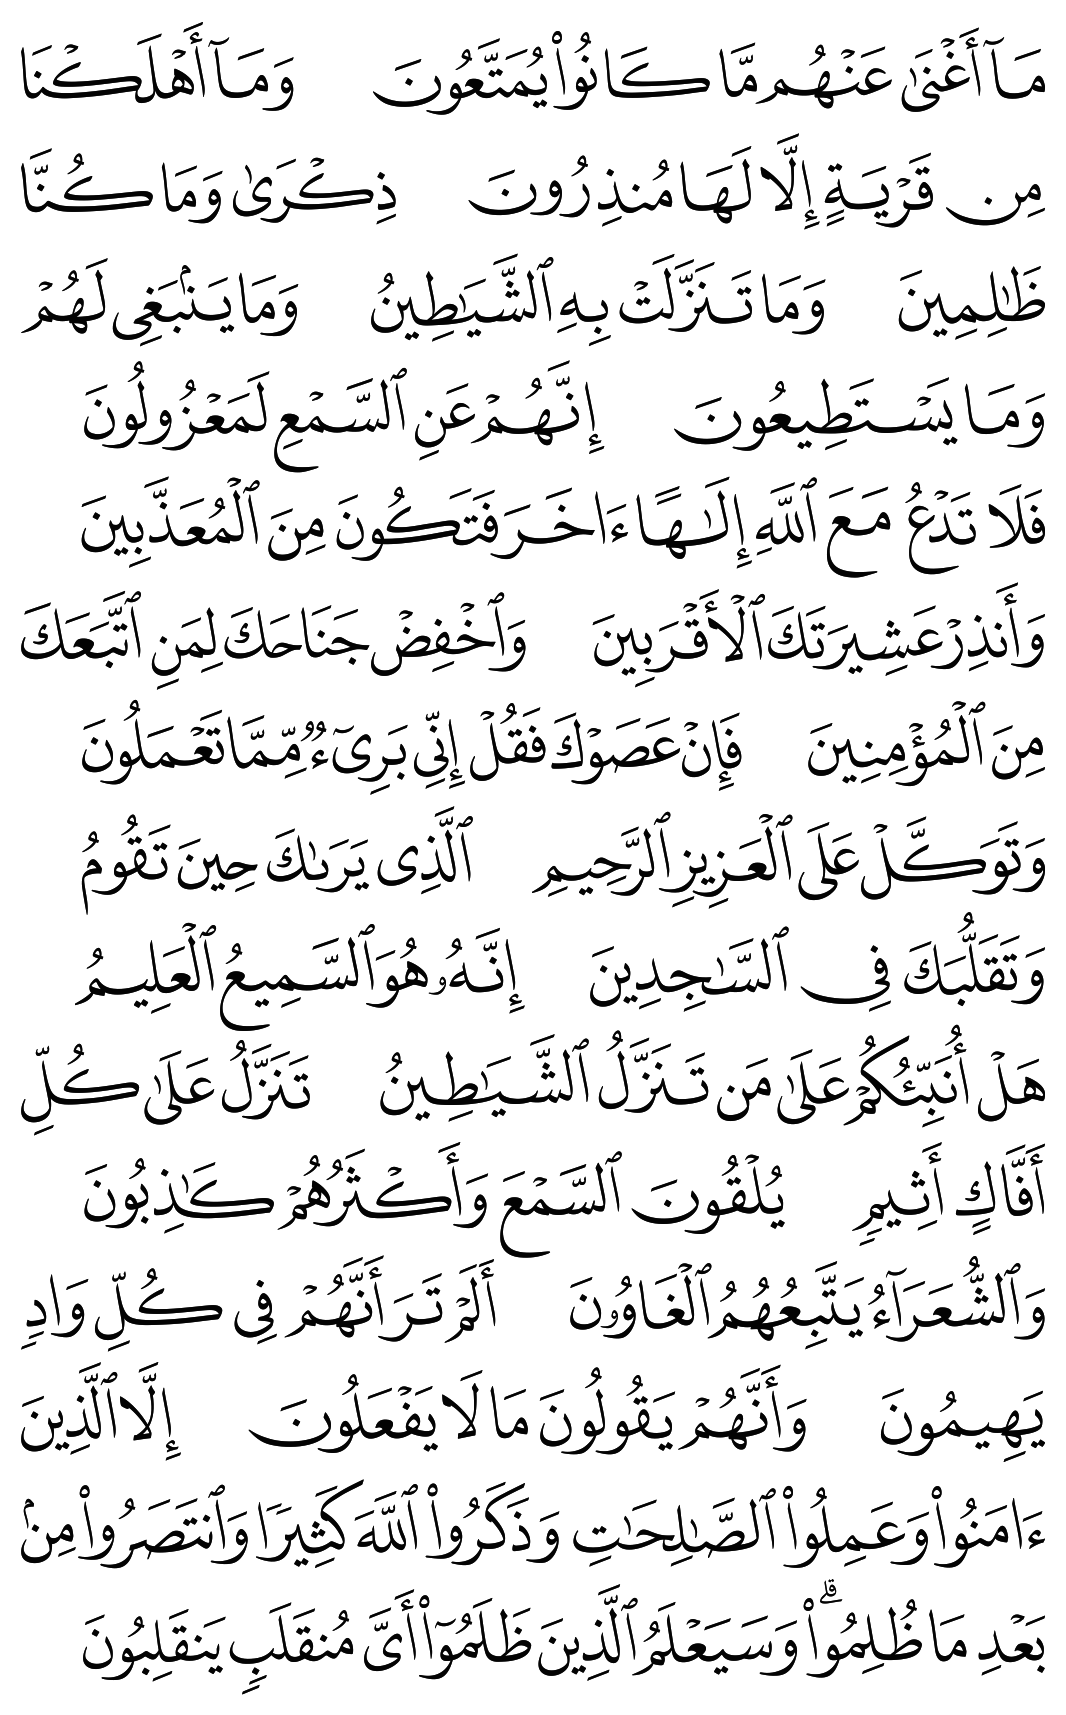 مَآ أَغْنَىٰ عَنْهُم مَّا كَانُوا۟ يُمَتَّعُونَ وَمَآ أَهْلَكْنَا
مِن قَرْيَةٍ إِلَّا لَهَا مُنذِرُونَ ذِكْرَىٰ وَمَا كُنَّا
ظَٰلِمِينَ وَمَا تَنَزَّلَتْ بِهِ ٱلشَّيَٰطِينُ وَمَا يَنۢبَغِى لَهُمْ
وَمَا يَسْتَطِيعُونَ إِنَّهُمْ عَنِ ٱلسَّمْعِ لَمَعْزُولُونَ
فَلَا تَدْعُ مَعَ ٱللَّهِ إِلَٰهًا ءَاخَرَ فَتَكُونَ مِنَ ٱلْمُعَذَّبِينَ
وَأَنذِرْ عَشِيرَتَكَ ٱلْأَقْرَبِينَ وَٱخْفِضْ جَنَاحَكَ لِمَنِ ٱتَّبَعَكَ
مِنَ ٱلْمُؤْمِنِينَ فَإِنْ عَصَوْكَ فَقُلْ إِنِّى بَرِىٓءٌ مِّمَّا تَعْمَلُونَ
وَتَوَكَّلْ عَلَى ٱلْعَزِيزِ ٱلرَّحِيمِ ٱلَّذِى يَرَىٰكَ حِينَ تَقُومُ
وَتَقَلُّبَكَ فِى ٱلسَّٰجِدِينَ إِنَّهُۥ هُوَ ٱلسَّمِيعُ ٱلْعَلِيمُ
هَلْ أُنَبِّئُكُمْ عَلَىٰ مَن تَنَزَّلُ ٱلشَّيَٰطِينُ تَنَزَّلُ عَلَىٰ كُلِّ
أَفَّاكٍ أَثِيمٍ يُلْقُونَ ٱلسَّمْعَ وَأَكْثَرُهُمْ كَٰذِبُونَ
وَٱلشُّعَرَآءُ يَتَّبِعُهُمُ ٱلْغَاوُۥنَ أَلَمْ تَرَ أَنَّهُمْ فِى كُلِّ وَادٍ
يَهِيمُونَ وَأَنَّهُمْ يَقُولُونَ مَا لَا يَفْعَلُونَ إِلَّا ٱلَّذِينَ
ءَامَنُوا۟ وَعَمِلُوا۟ ٱلصَّٰلِحَٰتِ وَذَكَرُوا۟ ٱللَّهَ كَثِيرًا وَٱنتَصَرُوا۟ مِنۢ
بَعْدِ مَا ظُلِمُوا۟ ۗ وَسَيَعْلَمُ ٱلَّذِينَ ظَلَمُوٓا۟ أَىَّ مُنقَلَبٍ يَنقَلِبُونَ